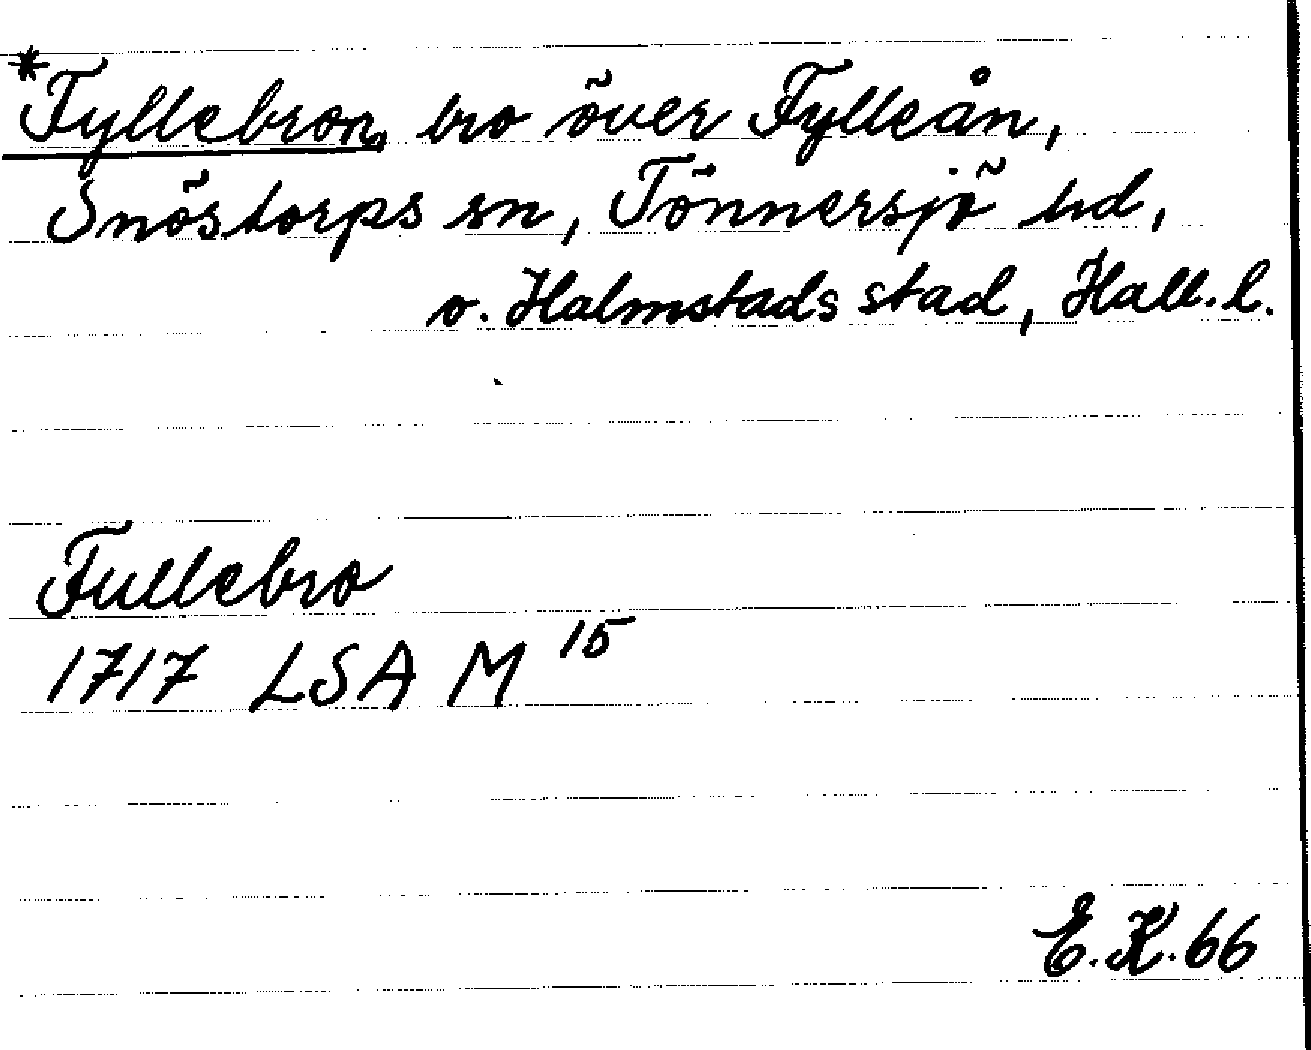 *Fyllebron, bro över Fylleån,
Snöstorps sn, Tönnersjö hd,
v. Halmstads stad, Hall. l.
Fullebro
1717 LSA M 15
E.K. 66